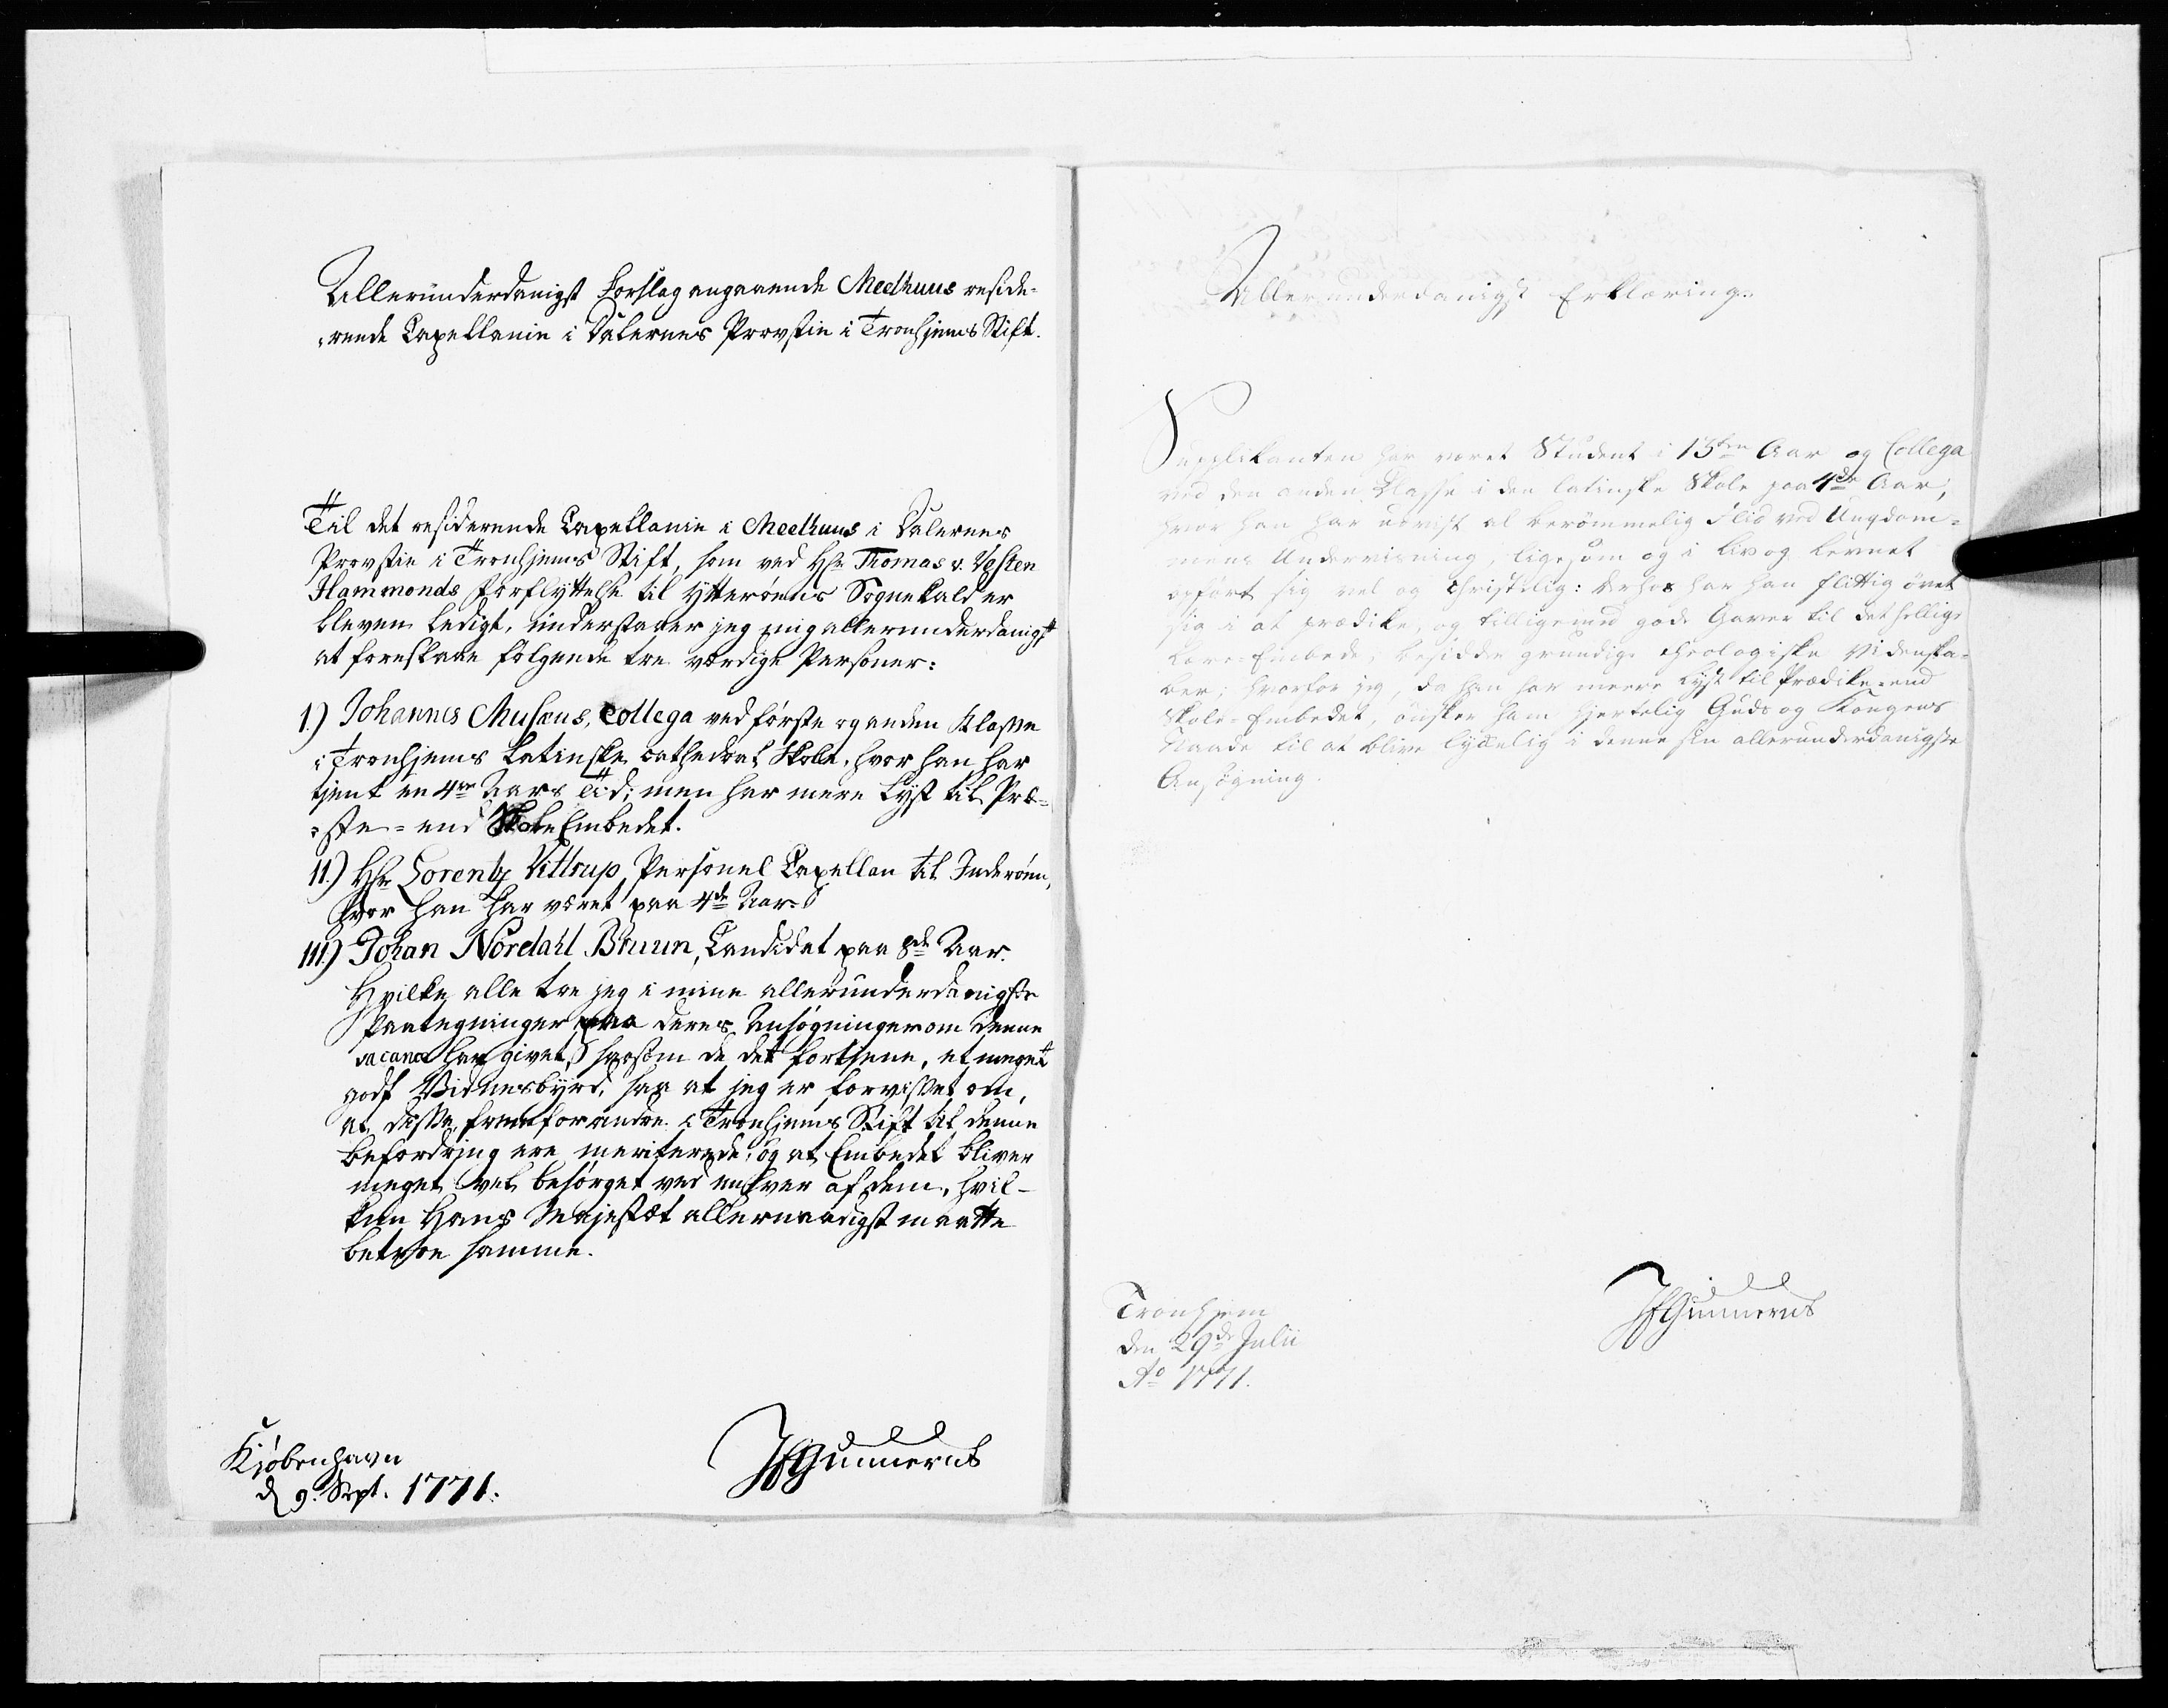 Allerunderdanigst Forslag angaaende Meelhuus reside-
-rende Capellanie i Dalernes Provstie i Tronhjems Stift.
Til det residerende Capellanie i Meelhuus i Dalernes
Provstie i Tronhjems Stift, som ved Hr Thomas v. Westen
Hammonds Forflyttelse til Ytterøens Sognekald er
bleven ledigt, understaaer jeg mig allerunderdanigst
at foreslaae følgende tre værdige Personer:
1.) Johannes Musæus, Collega ved første og anden Klasse
i Tronhjems Latinske cathedral Skole, hvor han har
tjent en 4re Aars Tid; men har mere Lyst til Præ-
-ste- end Skole Embedet.
11.) Hr Lorentz Vittrup, Personel Capellan til Inderøen,
hvor han har været paa 4de Aar.
111.) Johan Nordahl Bruun, Candidat paa 8de Aar.
Hvilke alle tre jeg i mine allerunderdanigste
Paategninger paa deres Ansøgninger om denne
vacance har givet, hvorsom de det fortjene, et meget
godt Vidnesbyrd, saa at jeg er forvisset om,
at disse fremfor andre i Tronhjems Stift til denne
Befordring ere meriterede, og at Embedet bliver
meget vel besørget ved enhver af dem, hvil-
ken Hans Majestæt allernaadigst maatte
betroe samme.
Kiøbenhavn
d 9. Sept. 1771.
JEGunnerus
Allerunderdanigst Erklæring.
Supplikanten har været Student i 13ten Aar og Collega
ved den anden Classe i den latinske Skole paa 4de Aar,
hvor han har udvist al berømmelig Flid ved Ungdom-
mens Undervisning, ligesom og i Liv og Levnet
opført sig vel og christelig: derhos har han flittig øvet
sig i at prædike, og tilligemed gode Gaver til det hellige
Lære-Embede, besidder grundige theologiske Videnska-
ber; hvorfor jeg, da han har meere Lyst til Prædike- end
Skole-Embedet, ønsker ham hjertelig Guds og Kongens
Naade til at blive lydelig i denne sin allerunderdanigste
Ansøgning.
Tronhjem
den 29de Julii
Ao 1771.
JEGunnerus